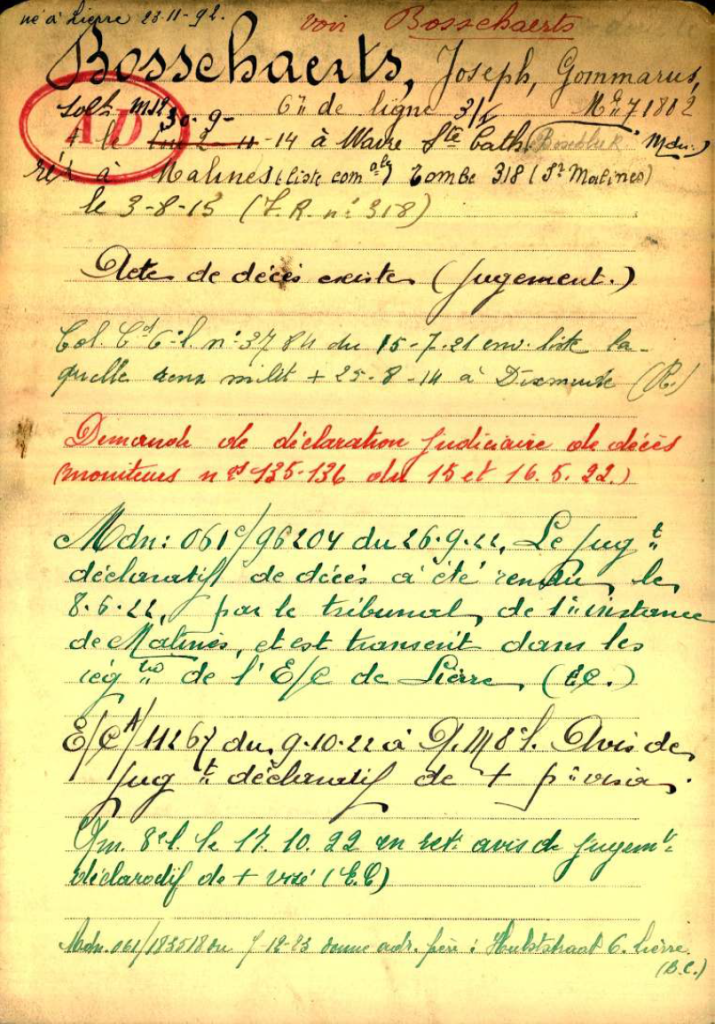 né à Lierre 23-11-92. voir Bosschaerts
Bosschaerts, Joseph, Gommarus,
AD
Solt mil 6e de ligne 31/6
30-9-
+ le 11-14 à Wavre Ste Cath Mdn:)
à Malines (liste com ale) Tombe 318 (St Malines)
le 3-8-15 (F.R. n° 318)
Acte de décès existe (jugement.)
Col. Ct 6e l n° 3784 du 15-7-21 env. liste la-
quelle rens milit + 25-8-14 à Dixmude (R.)
Demande de déclaration judiciaire de décès
(moniteurs nos 135-136 du 15 et 16.5.22.)
Mdn: 061c/96204 du 26-9-22, Le jugt
déclaratif de décès a été rendu le
8-6-22, par le tribunal de 1ère instance
de Malines, et est transcrit dans les
regtres de l'E/C de Lierre (EC.)
E/C A/11267 du 9-10-22 à Q.M 8e l. Avis de
jugt déclaratif de + pr visa.
Qm. 8e l. le 17.10.22 en ret. avis de jugemt
déclaratif de + visé (E.C)
Mdn. 061/183518 du 7-12-23 donne adr. père: Hulststraat 6. Lierre
(B.C.)